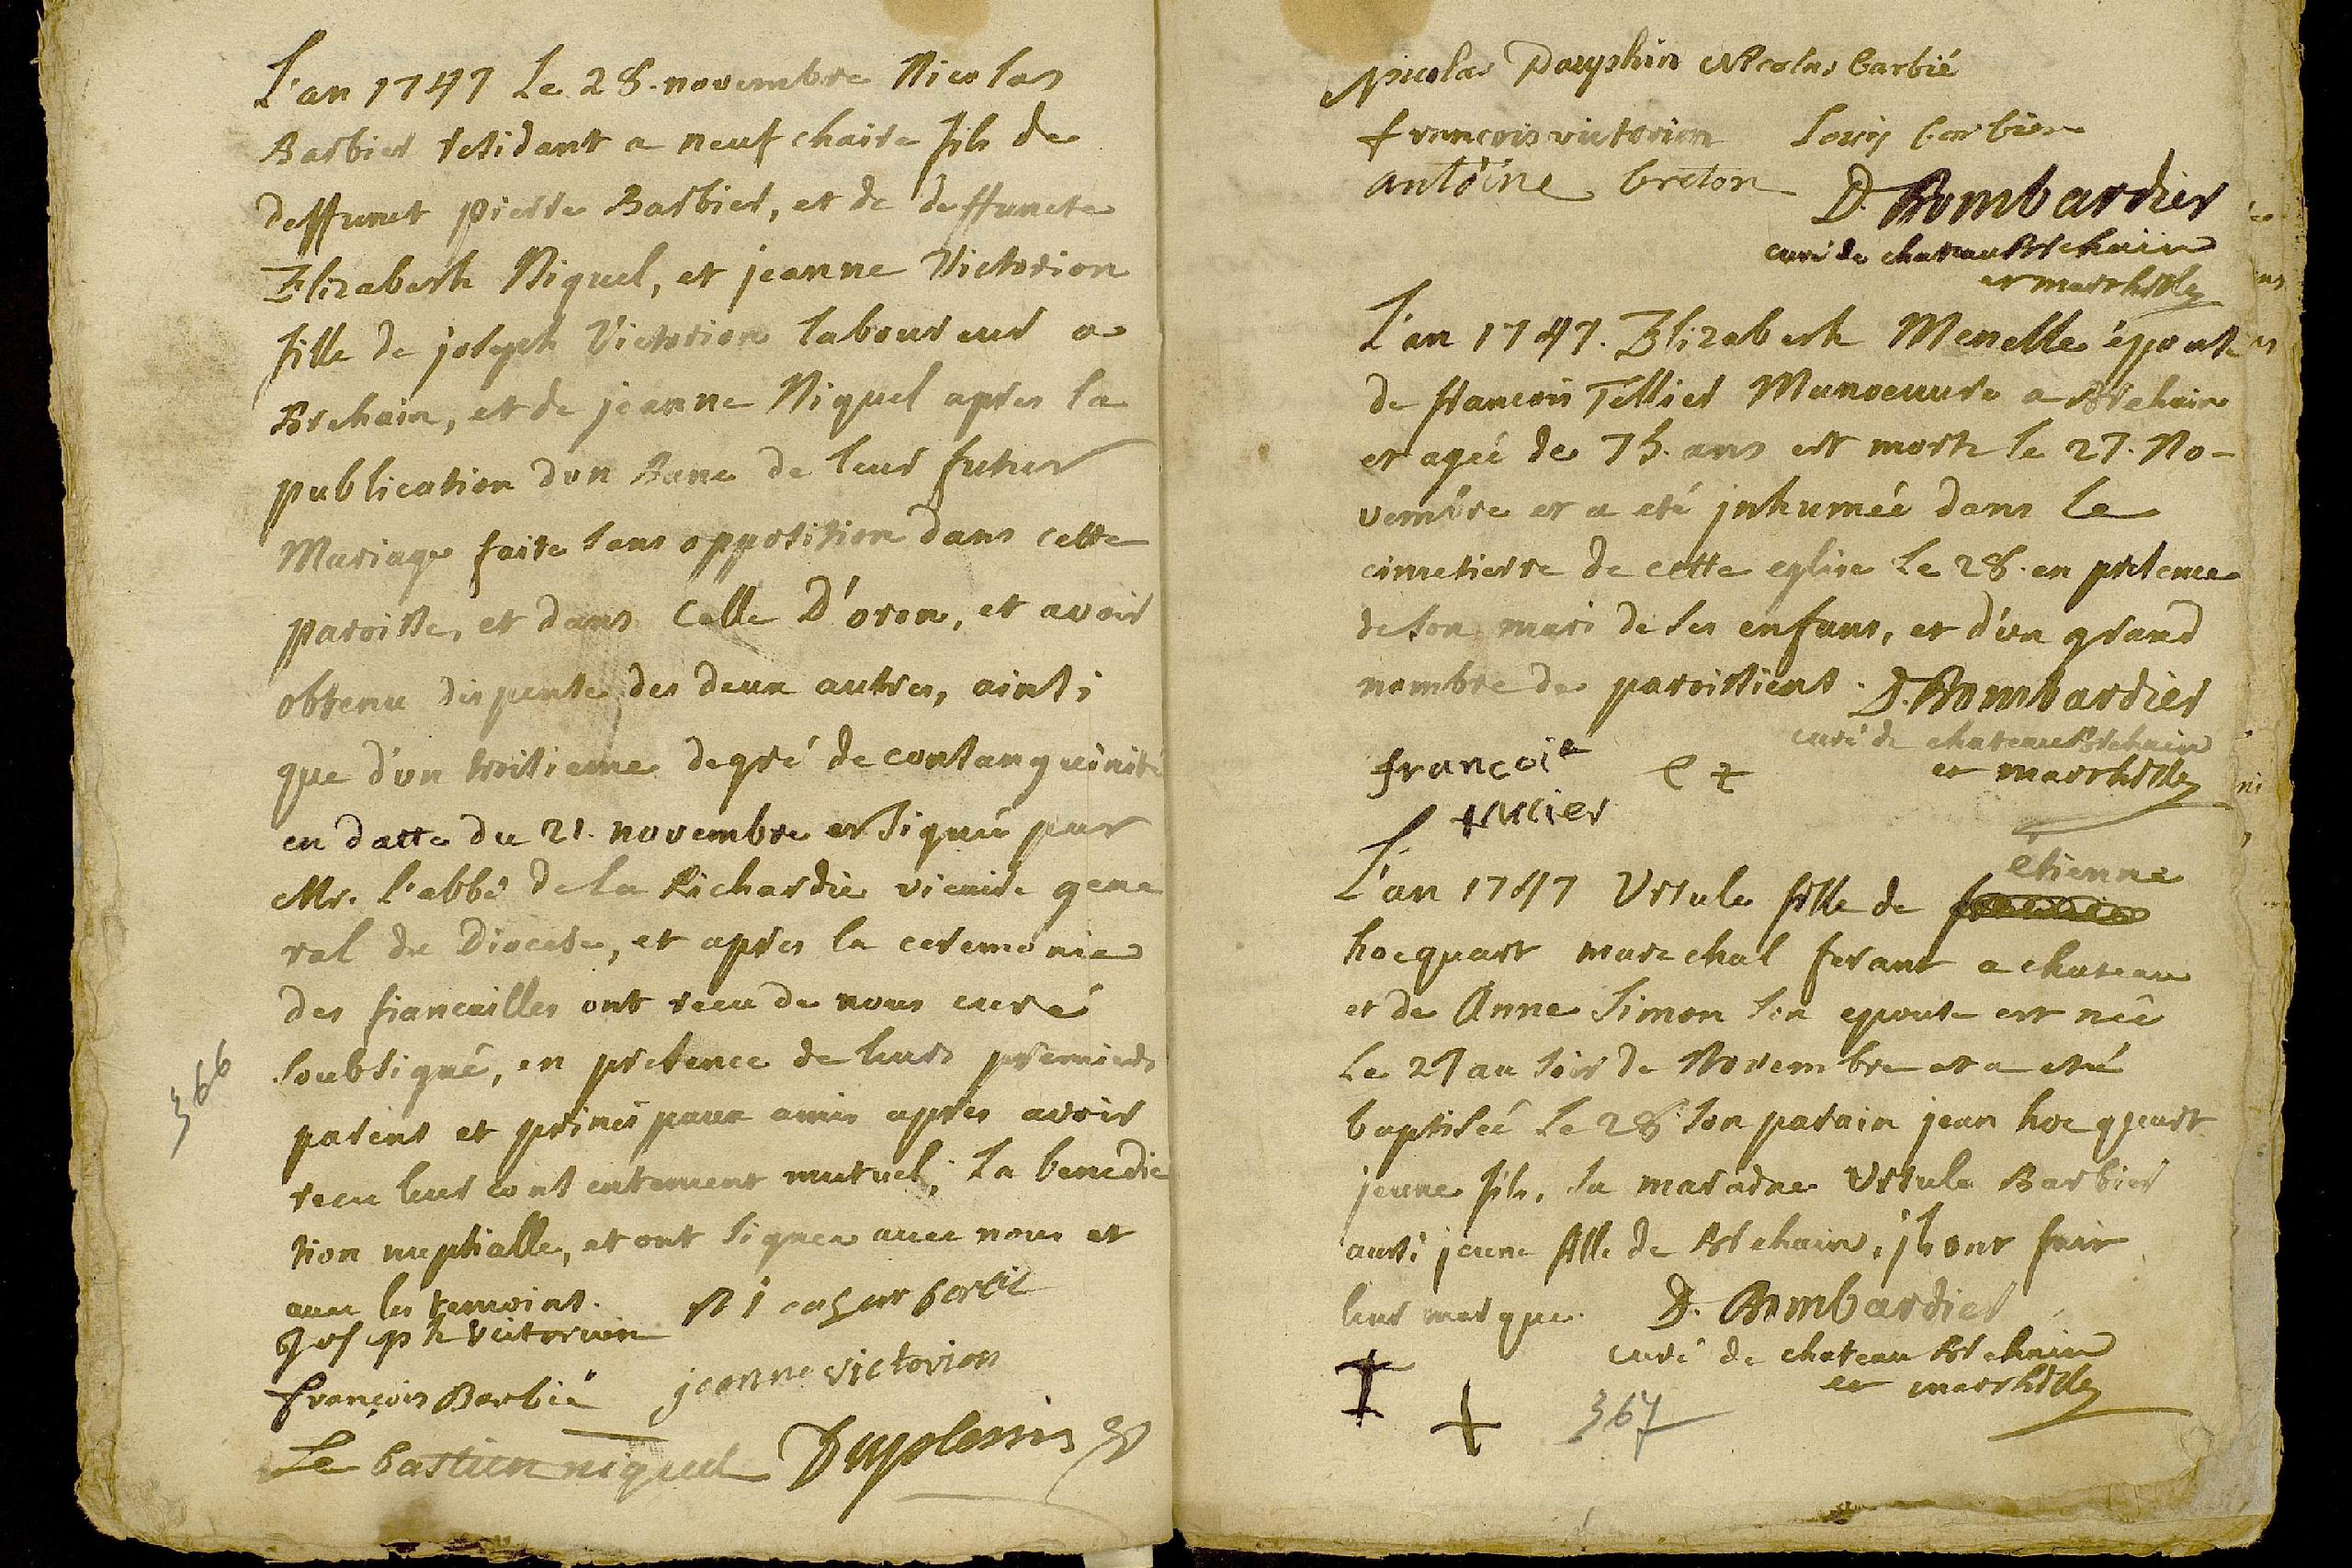 L'an 1747 le 28. novembre Nicolas
Barbier residant a neufchaire fils de
deffunct pierre Barbier, et de deffuncte
Elizabeth Niquel, et jeanne Victorion
fille de joseph Victorion laboureur a
Brehain, et de jeanne Niquel apres la
publication d'un Banc de leur futur
Mariage faite sans opposition dans cette
paroisse, et dans celle D'oron, et avoir
obtenu dispense des deux autres, ainsi
que d'un troisieme degré de consanguinité
en datte du 21. novembre et signée par
Mr. l'abbé de la Richardie vicaire gene
ral du Diocese, et apres la ceremonie
des fiancailles ont recu de nous curé
soubsigné, en presence de leurs premiers
parens et principaux amis apres avoir
recu leur consentement mutuel, la benedic
tion nuptialle, et ont signer avec nous et
avec les temoins.
Joseph victorion
françois Barbié jeanne victorion
Le bastien niquel Duplessis
366
Nicolas Dauphin Nicolas barbié
francois victorion Louis barbier
antoine breton D. Bombardier
curé de chateau Brehain
et marthille
L'an 1747. Elizabeth Menelle épouse
de francois Tellier Manoeuure a Brehain
et agée de 75. ans est morte le 27. No-
vembre et a eté jnhumée dans le
cimetierre de cette eglise le 28. en presence
de son mari de ses enfans, et d'un grand
nombre de paroissiens. D. Bombardier
curé de chateau Brehain
et marthille
françois
L'an 1747 Ursule fille de etienne
hocquart marechal ferant a chateau
et de Anne Simon son epouse est née
le 27 au soir de Novembre et a eté
baptisée le 28 son parain jean hocquart
jeune fils, la maraine Ursule Barbier
aussi jeune fille de Brehain, jls ont fait
leur marque. D. Bombardier
curé de chateau Brehain
et marthille
367